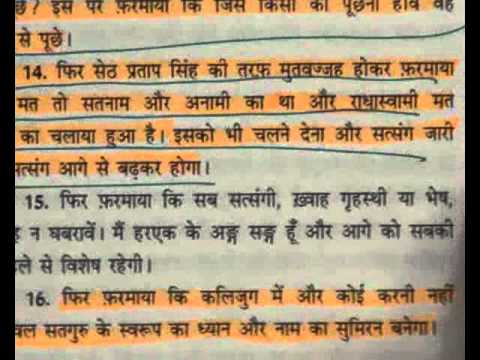 छे? इस पर फ़रमाया कि जिस किसी को पूछना होवे वह
से पूछे।
14. फिर सेठ प्रताप सिंह की तरफ़ मुतवज्जह होकर फ़रमाया
मत तो सतनाम और अनामी का था और राधास्वामी मत
का चलाया हुआ है। इसको भी चलने देना और सतसंग जारी
सतसंग आगे से बढ़कर होगा।
15. फिर फ़रमाया कि सब सतसंगी, ख़्वाह गृहस्थी या भेष,
ह न घबरावें। मैं हरएक के अङ्ग सङ्ग हूँ और आगे को सबकी
हले से विशेष रहेगी।
16. फिर फ़रमाया कि कलिजुग में और कोई करनी नहीं
वल सतगुरु के स्वरूप का ध्यान और नाम का सुमिरन बनेगा।